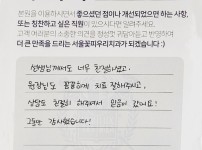 본원을 이용하시면서 좋으셨던 점이나 개선되었으면 하는 사항,
또는 칭찬하고 싶은 직원이 있으시다면 알려주세요.
고객 여러분의 소중한 의견을 항상 귀담아 듣고 반영하여
더 큰 만족을 드리는 서울꽃피우리치과가 되겠습니다 :)
선생님께서도 너무 친절하셨고,
원장님도 꼼꼼하게 치료 잘해주시고,
상담도 친절히 해주셔서 믿음이 갔어요!
그동안 감사했습니다!